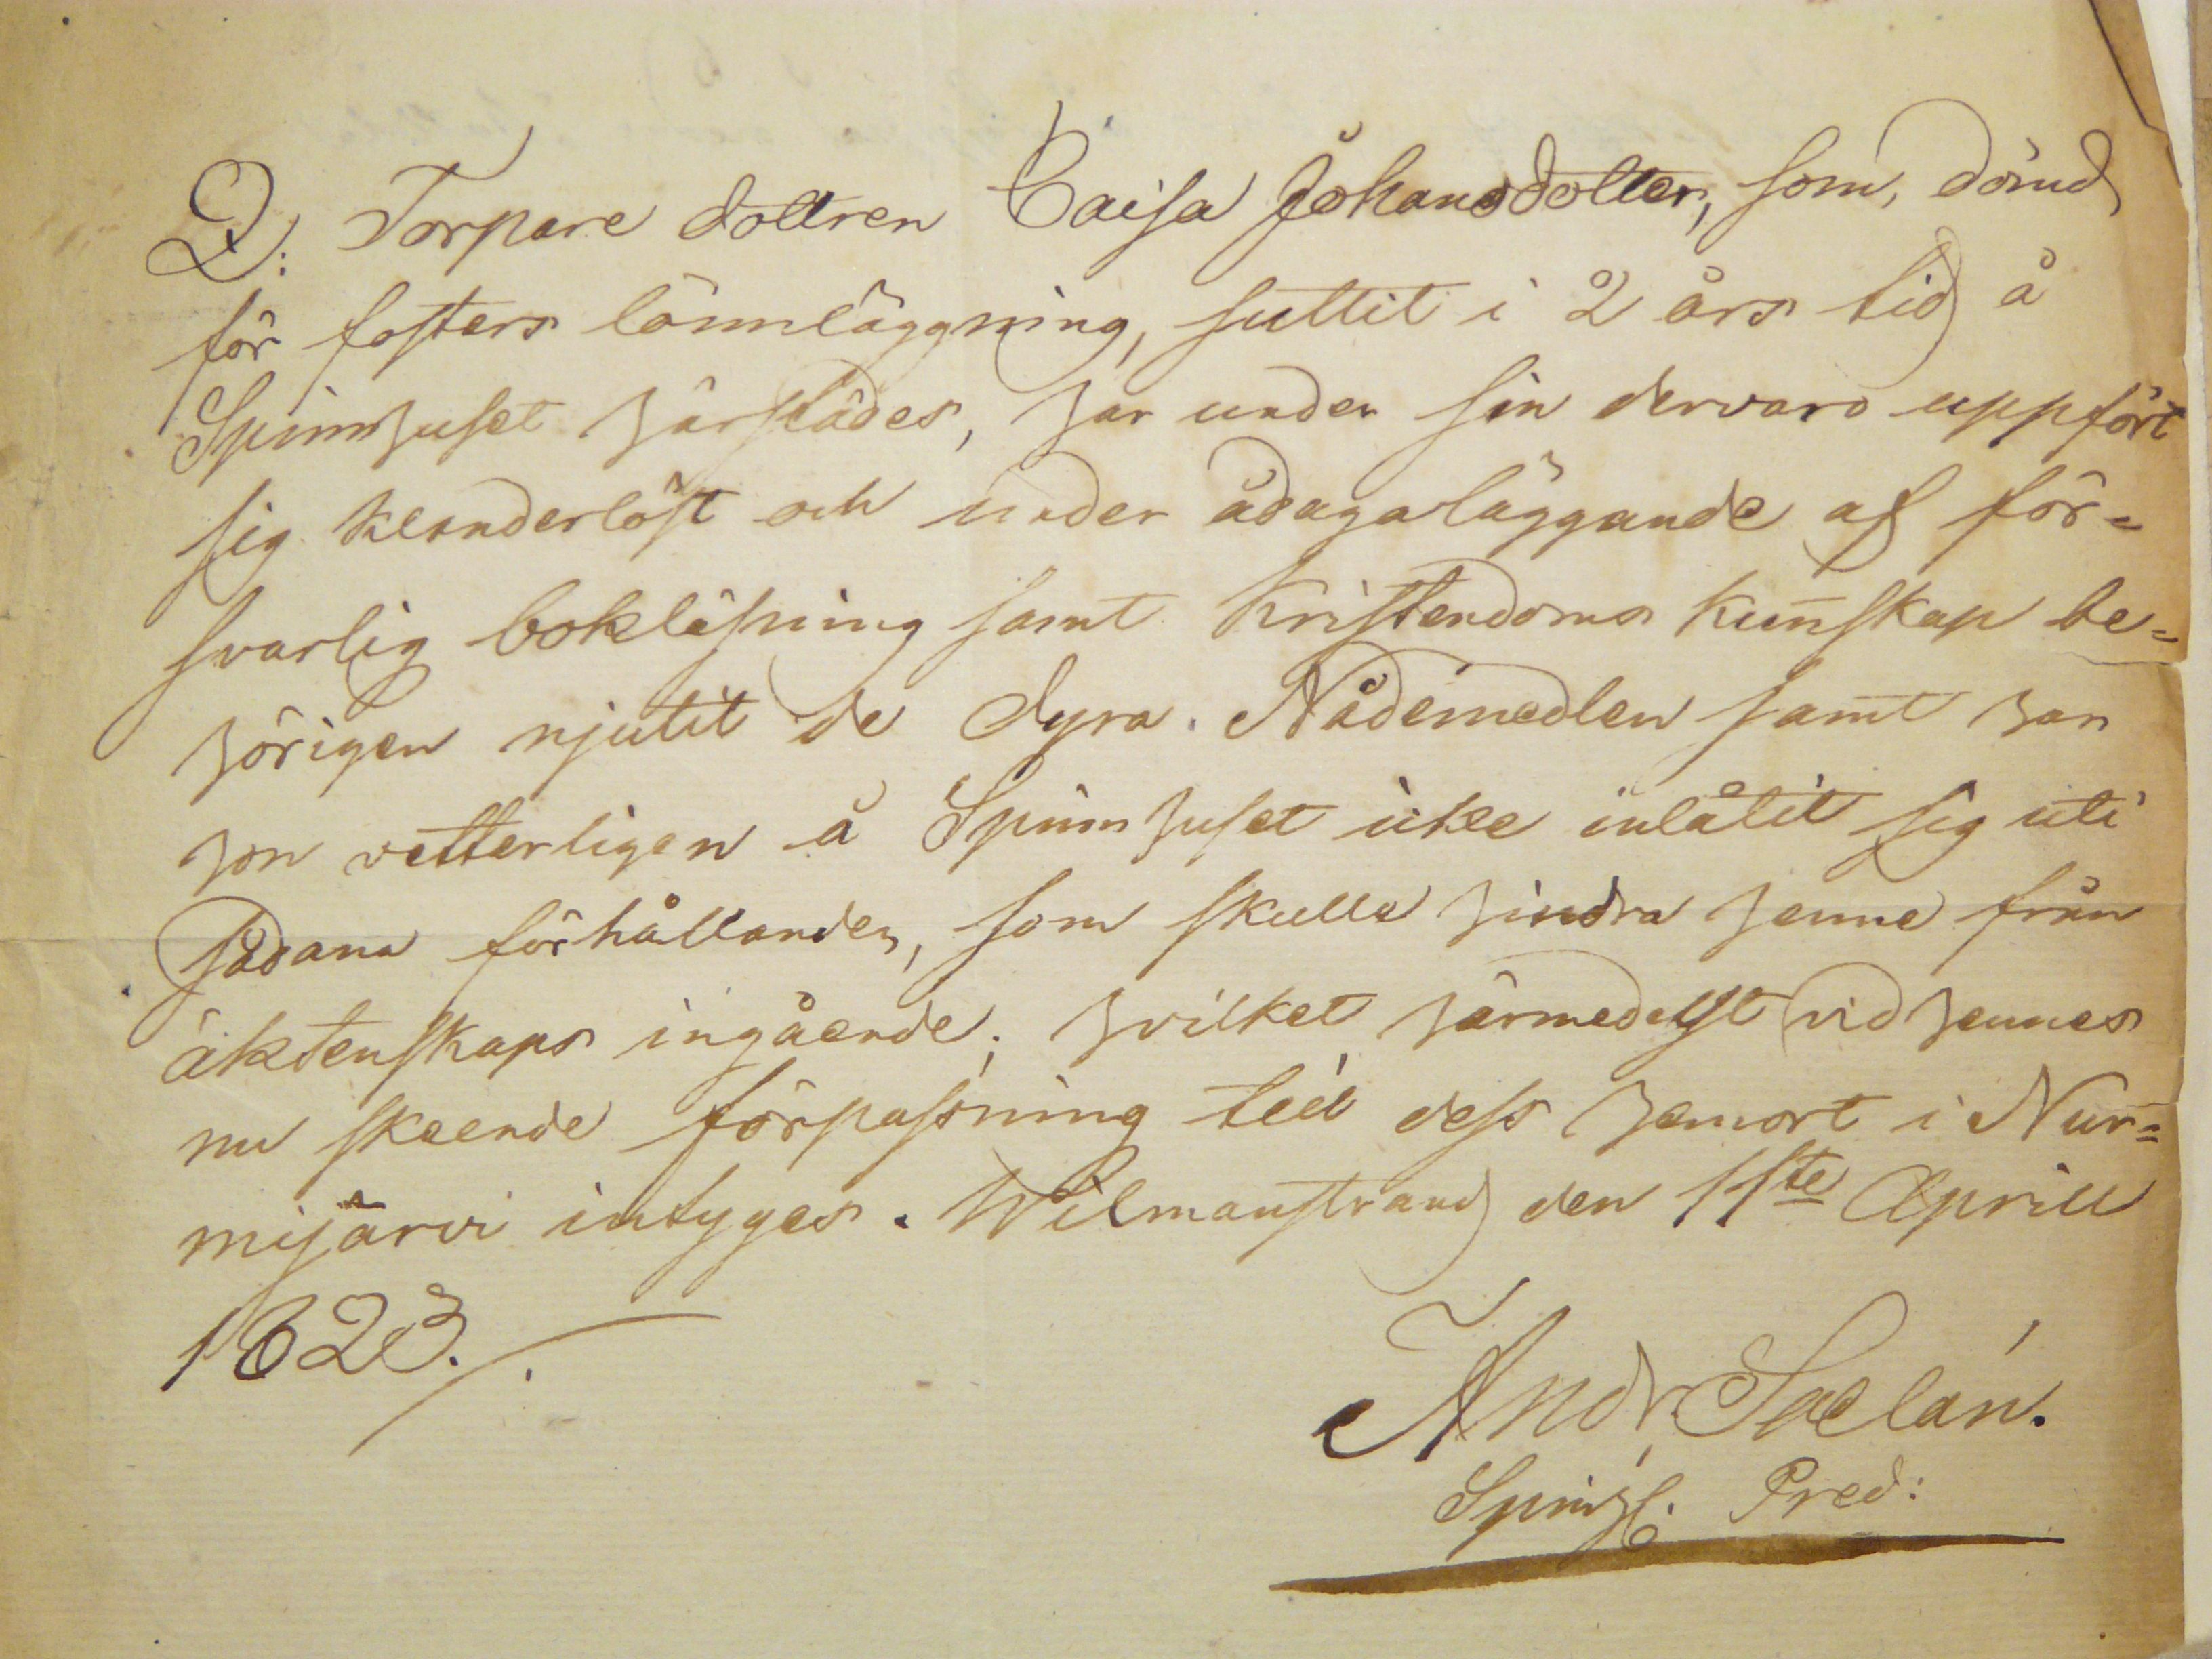 Q: Torpare dottren Caisa Johansdotter, som, dömd
för fosters lönnläggning, suttit i 2 års tid å
Spinnhuset härstädes, har under sin dervaro uppfört
sig klanderlöst och under ådagaläggande af för=
svarlig bokläsning samt Kristendoms kunskap be=
hörigen njutit de dyra Nådemedlen samt har
hon vetterligen å Spinnhuset icke inlåtit sig uti
sådana förhållanden, som skulle hindra henne från
äktenskaps ingående; hvilket härmedelst vid hennes
nu skeende förpassning till dess hemort i Nur=
mijärvi intyges. Wilmanstrand den 11te Aprill
1823.
Andr. Sælan.
Spinh. Pred: